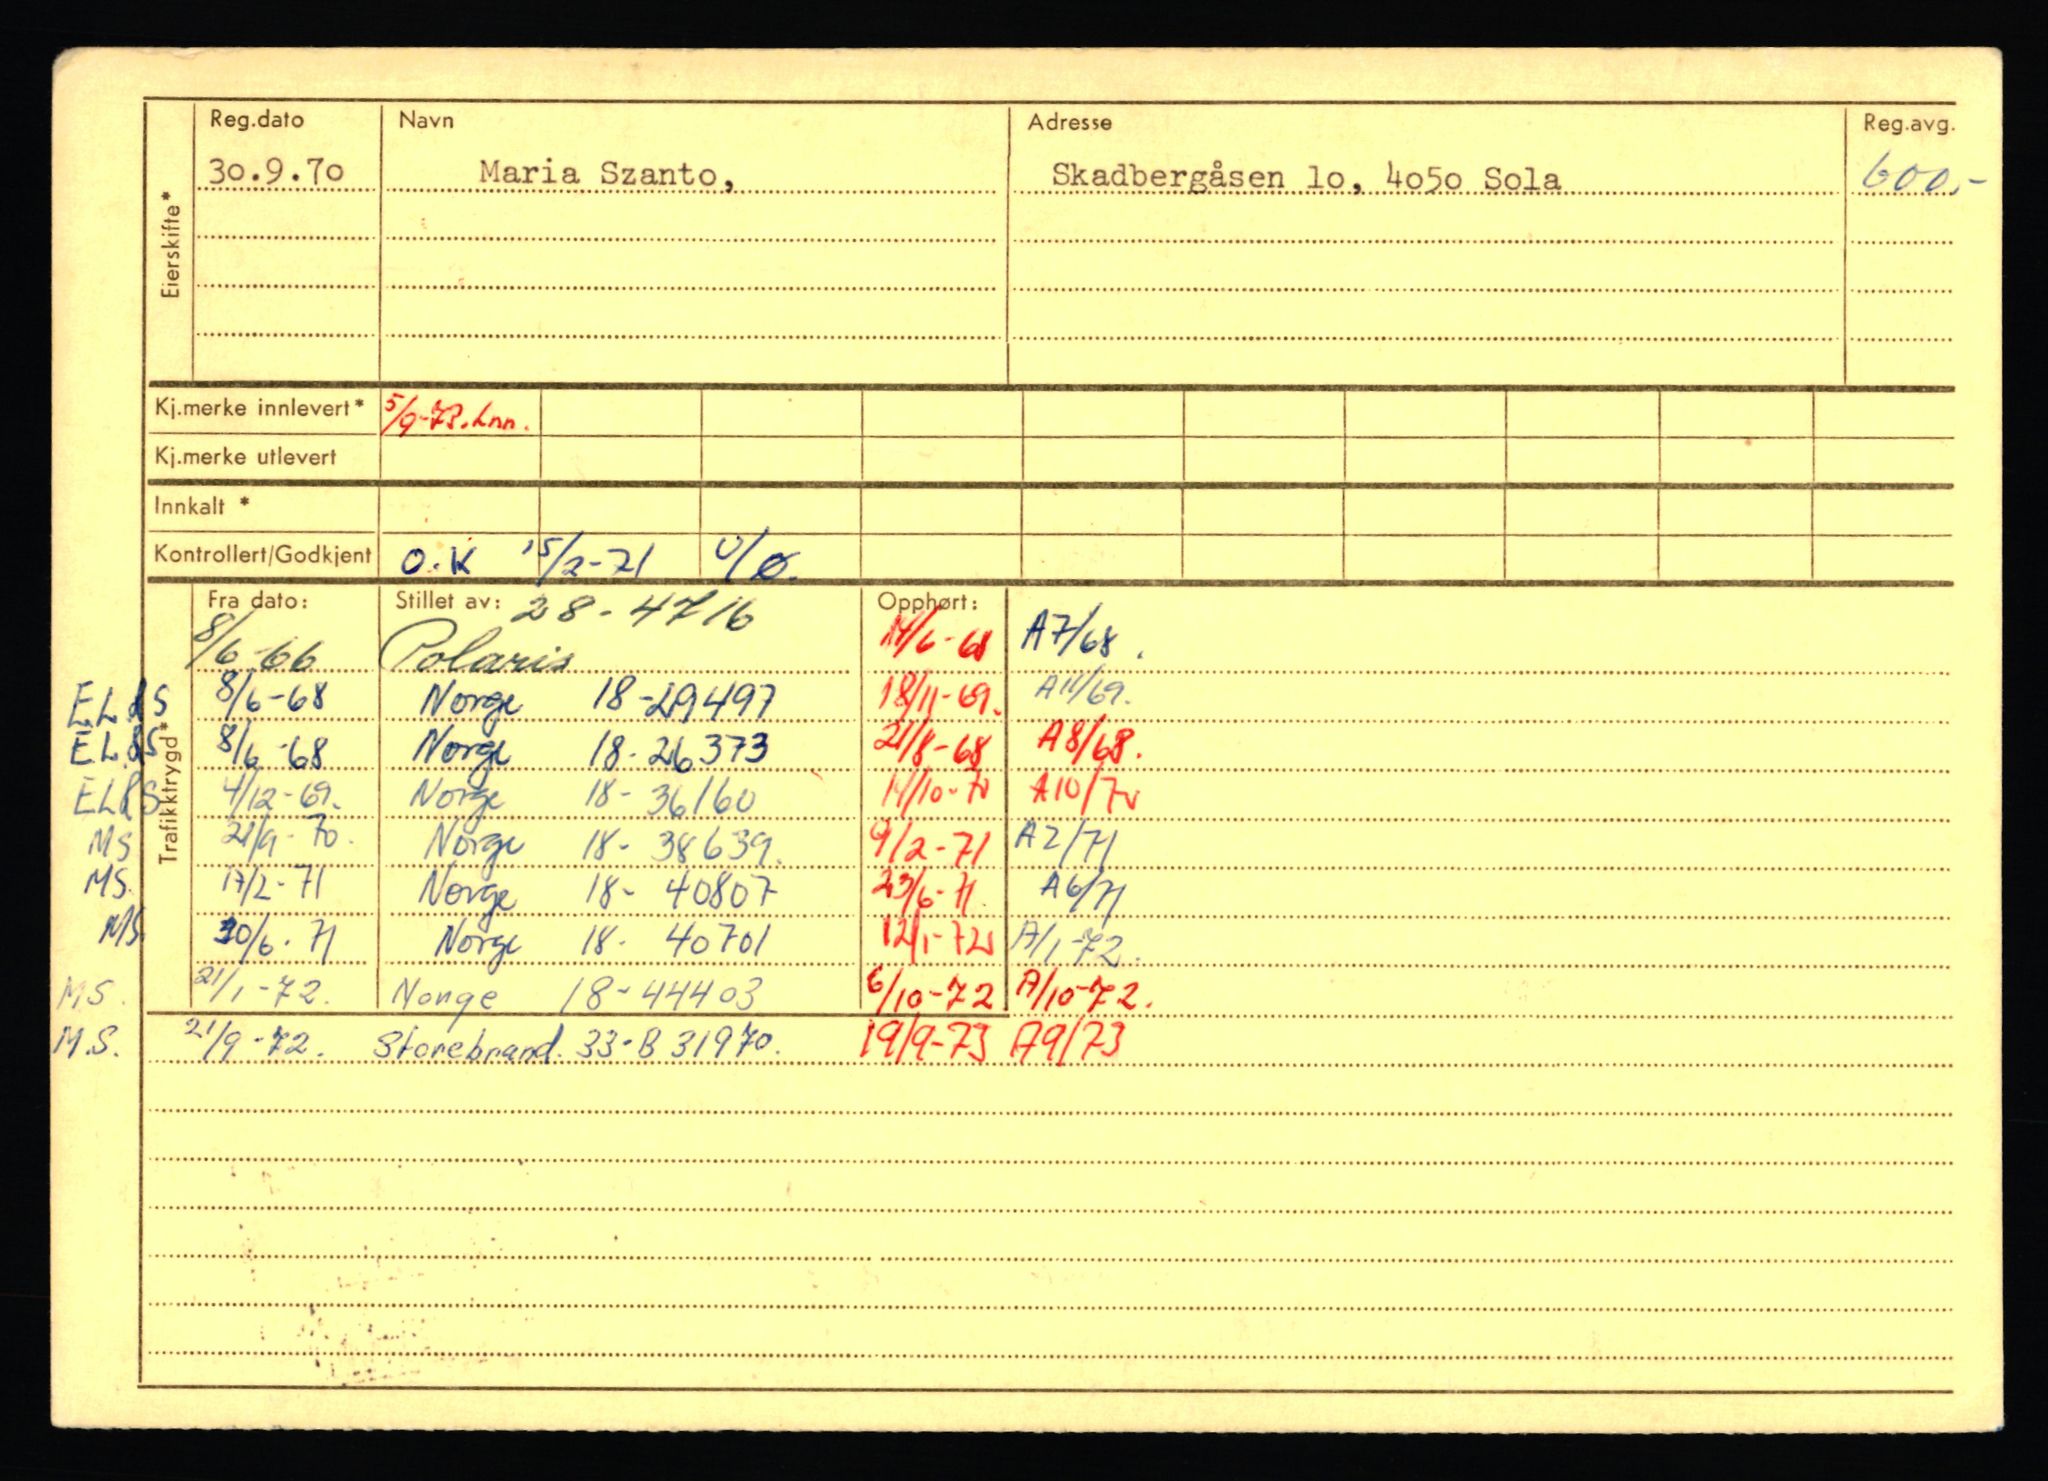 Reg.dato Navn Adresse Reg.avg.
30.9.70 Maria Szanto, Skadbergåsen 10, 4050 Sola 600,-
Eierskifte*
Kj.merke innlevert* 5/9-73. Inn.
Kj.merke utlevert
Innkalt *
Kontrollert/Godkjent O.K 15/2-71 U/Ø.
Trafikktrygd*
Fra dato: Stillet av: 28-4716 Opphørt:
8/6-66 Polaris 14/6-68 A7/68.
EL&S 8/6-68 Norge 18-29497 18/11-69. A11/69.
EL&S 8/6-68 Norge 18-26373 21/8-68 A8/68.
EL&S 4/12-69. Norge 18-36160 14/10-70 A10/70
MS 21/9-70. Norge 18-38639. 9/2-71 A2/71
MS. 17/2-71 Norge 18-40807 23/6-71. A6/71
MS 30/6.71 Norge 18-40701 12/1-72 A/1-72.
MS. 21/1-72. Norge 18-44403 6/10-72 A/10-72.
M.S. 21/9-72. Storebrand. 33-B31970. 19/9-73 A9/73